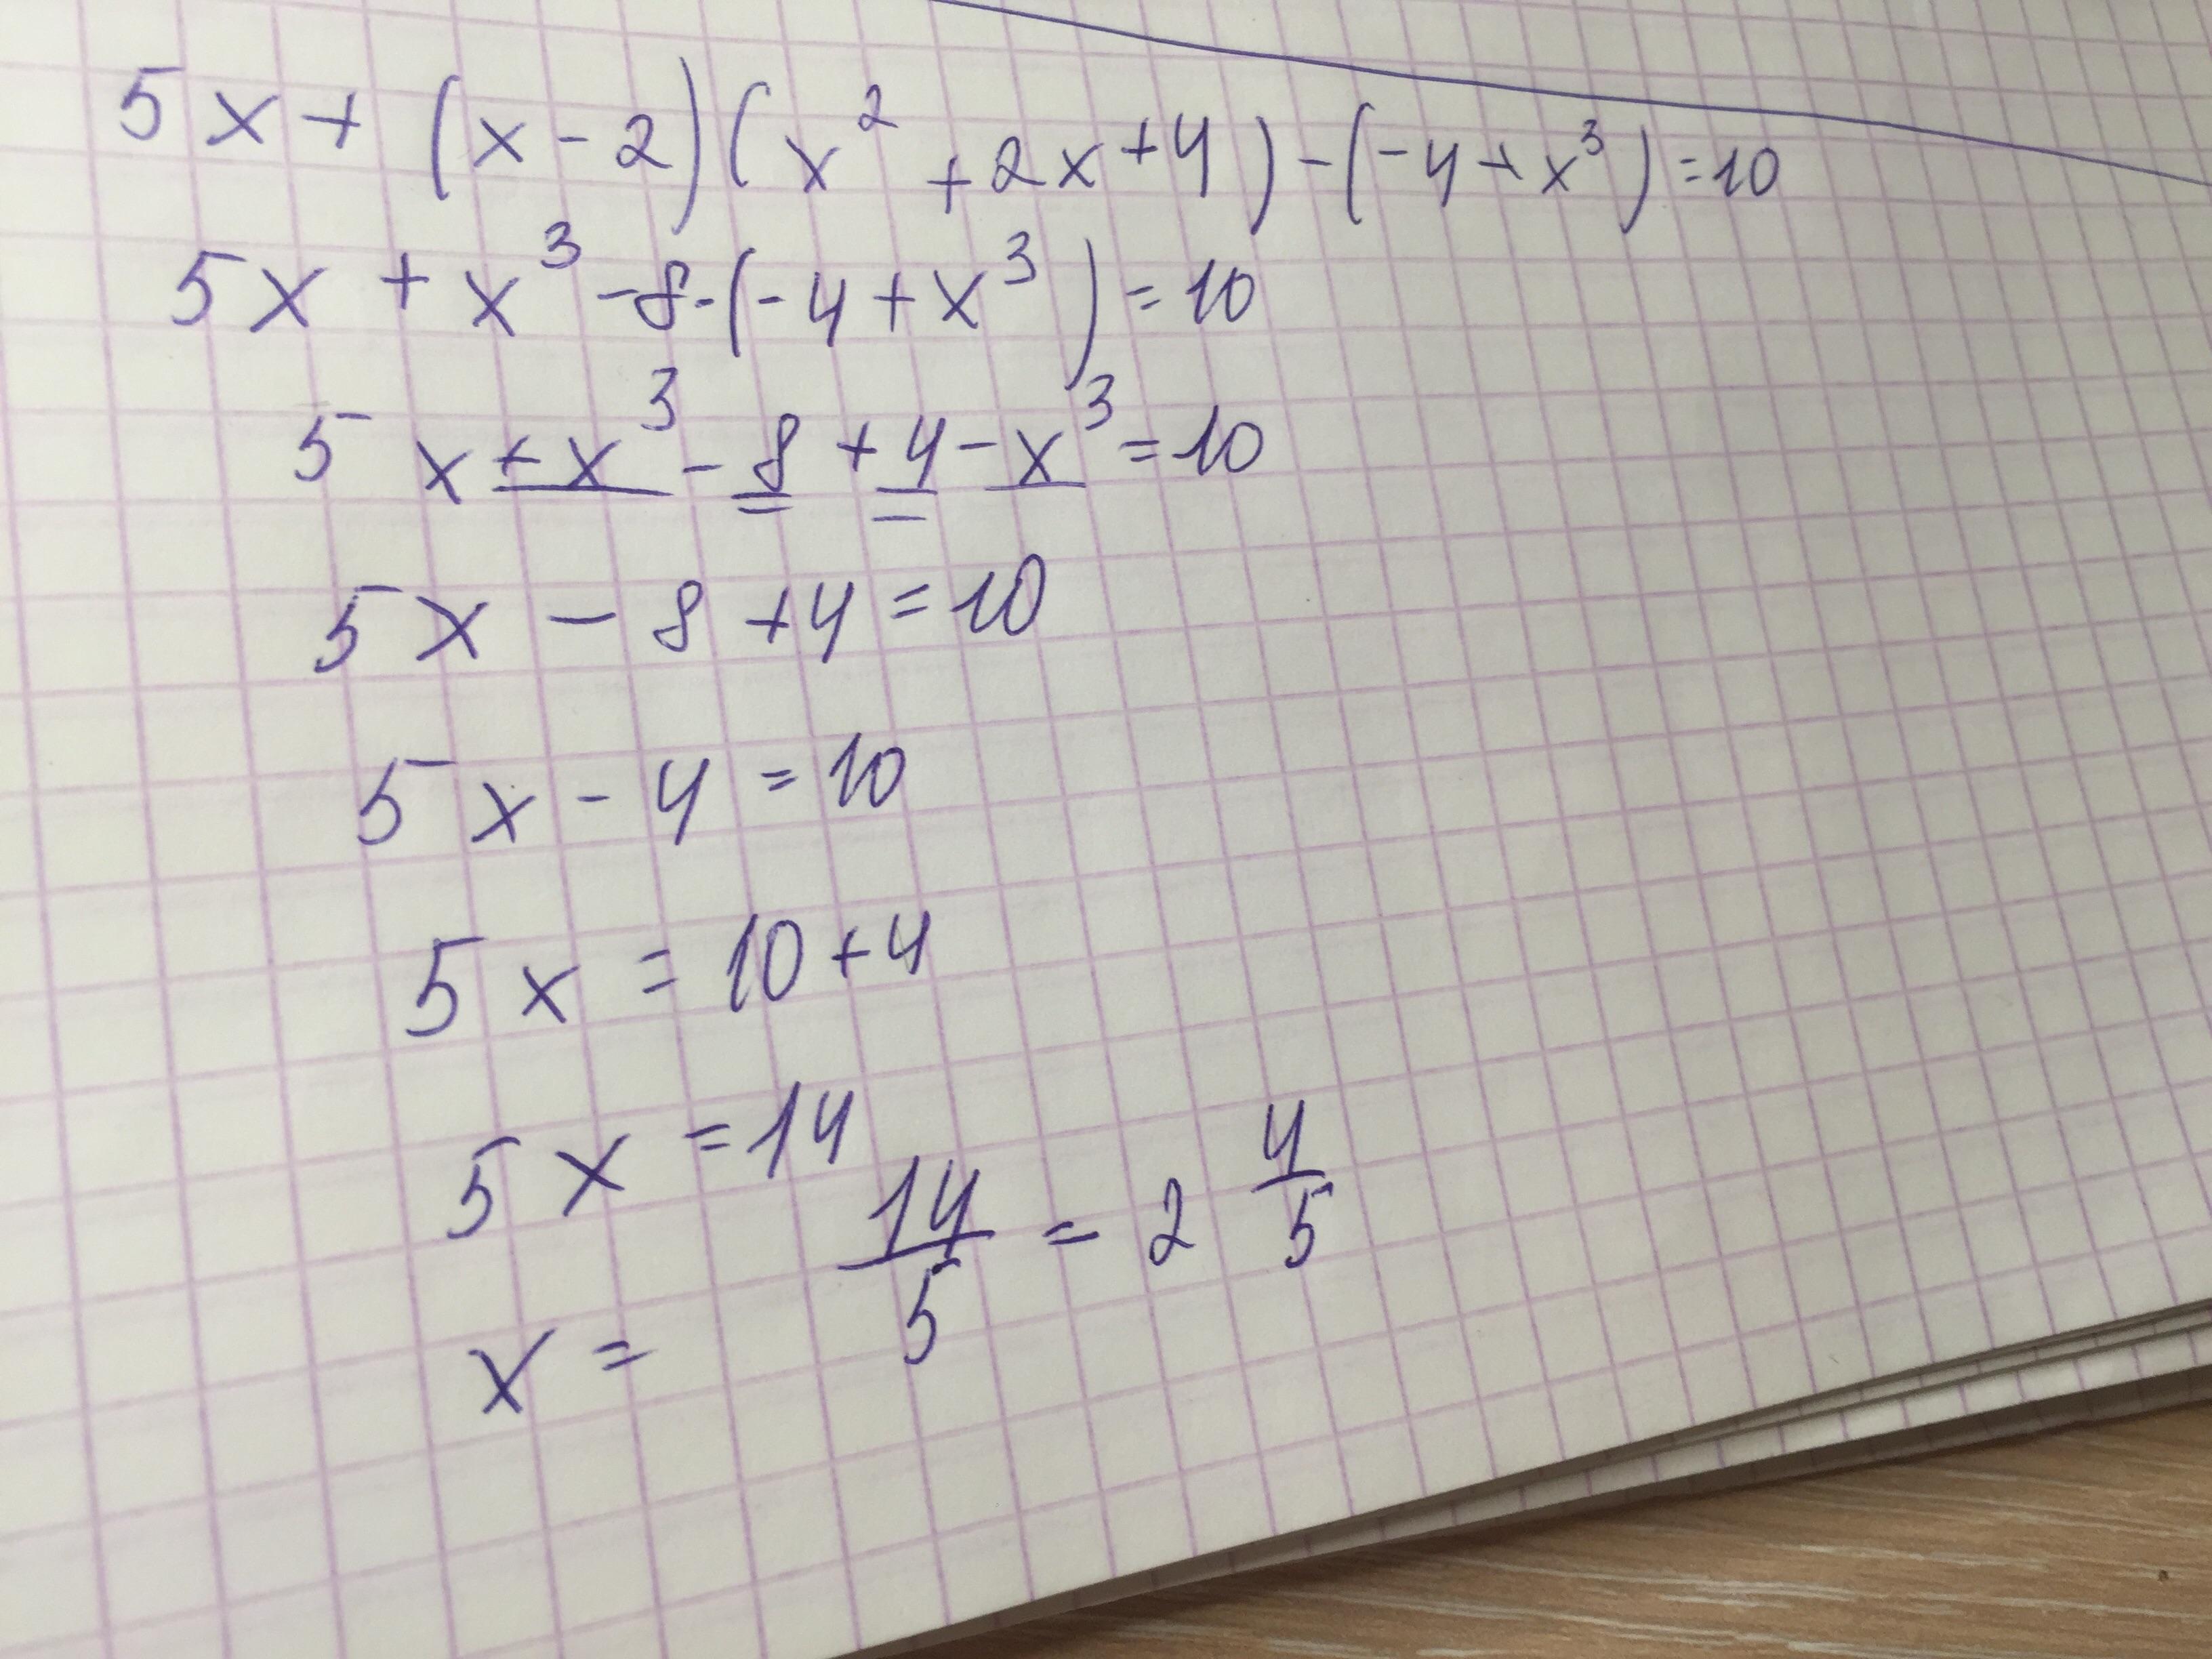 5x + (x - 2)(x² + 2x + 4) - (-4 + x³) = 10
5x + x³ - 8 - (-4 + x³) = 10
5x + x³ - 8 + 4 - x³ = 10
5x - 8 + 4 = 10
5x - 4 = 10
5x = 10 + 4
5x = 14
x = 14/5 = 2 4/5